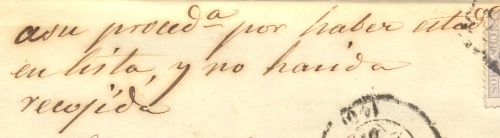 asu proced.ª por haber estado
en lista, y no haida
recojida